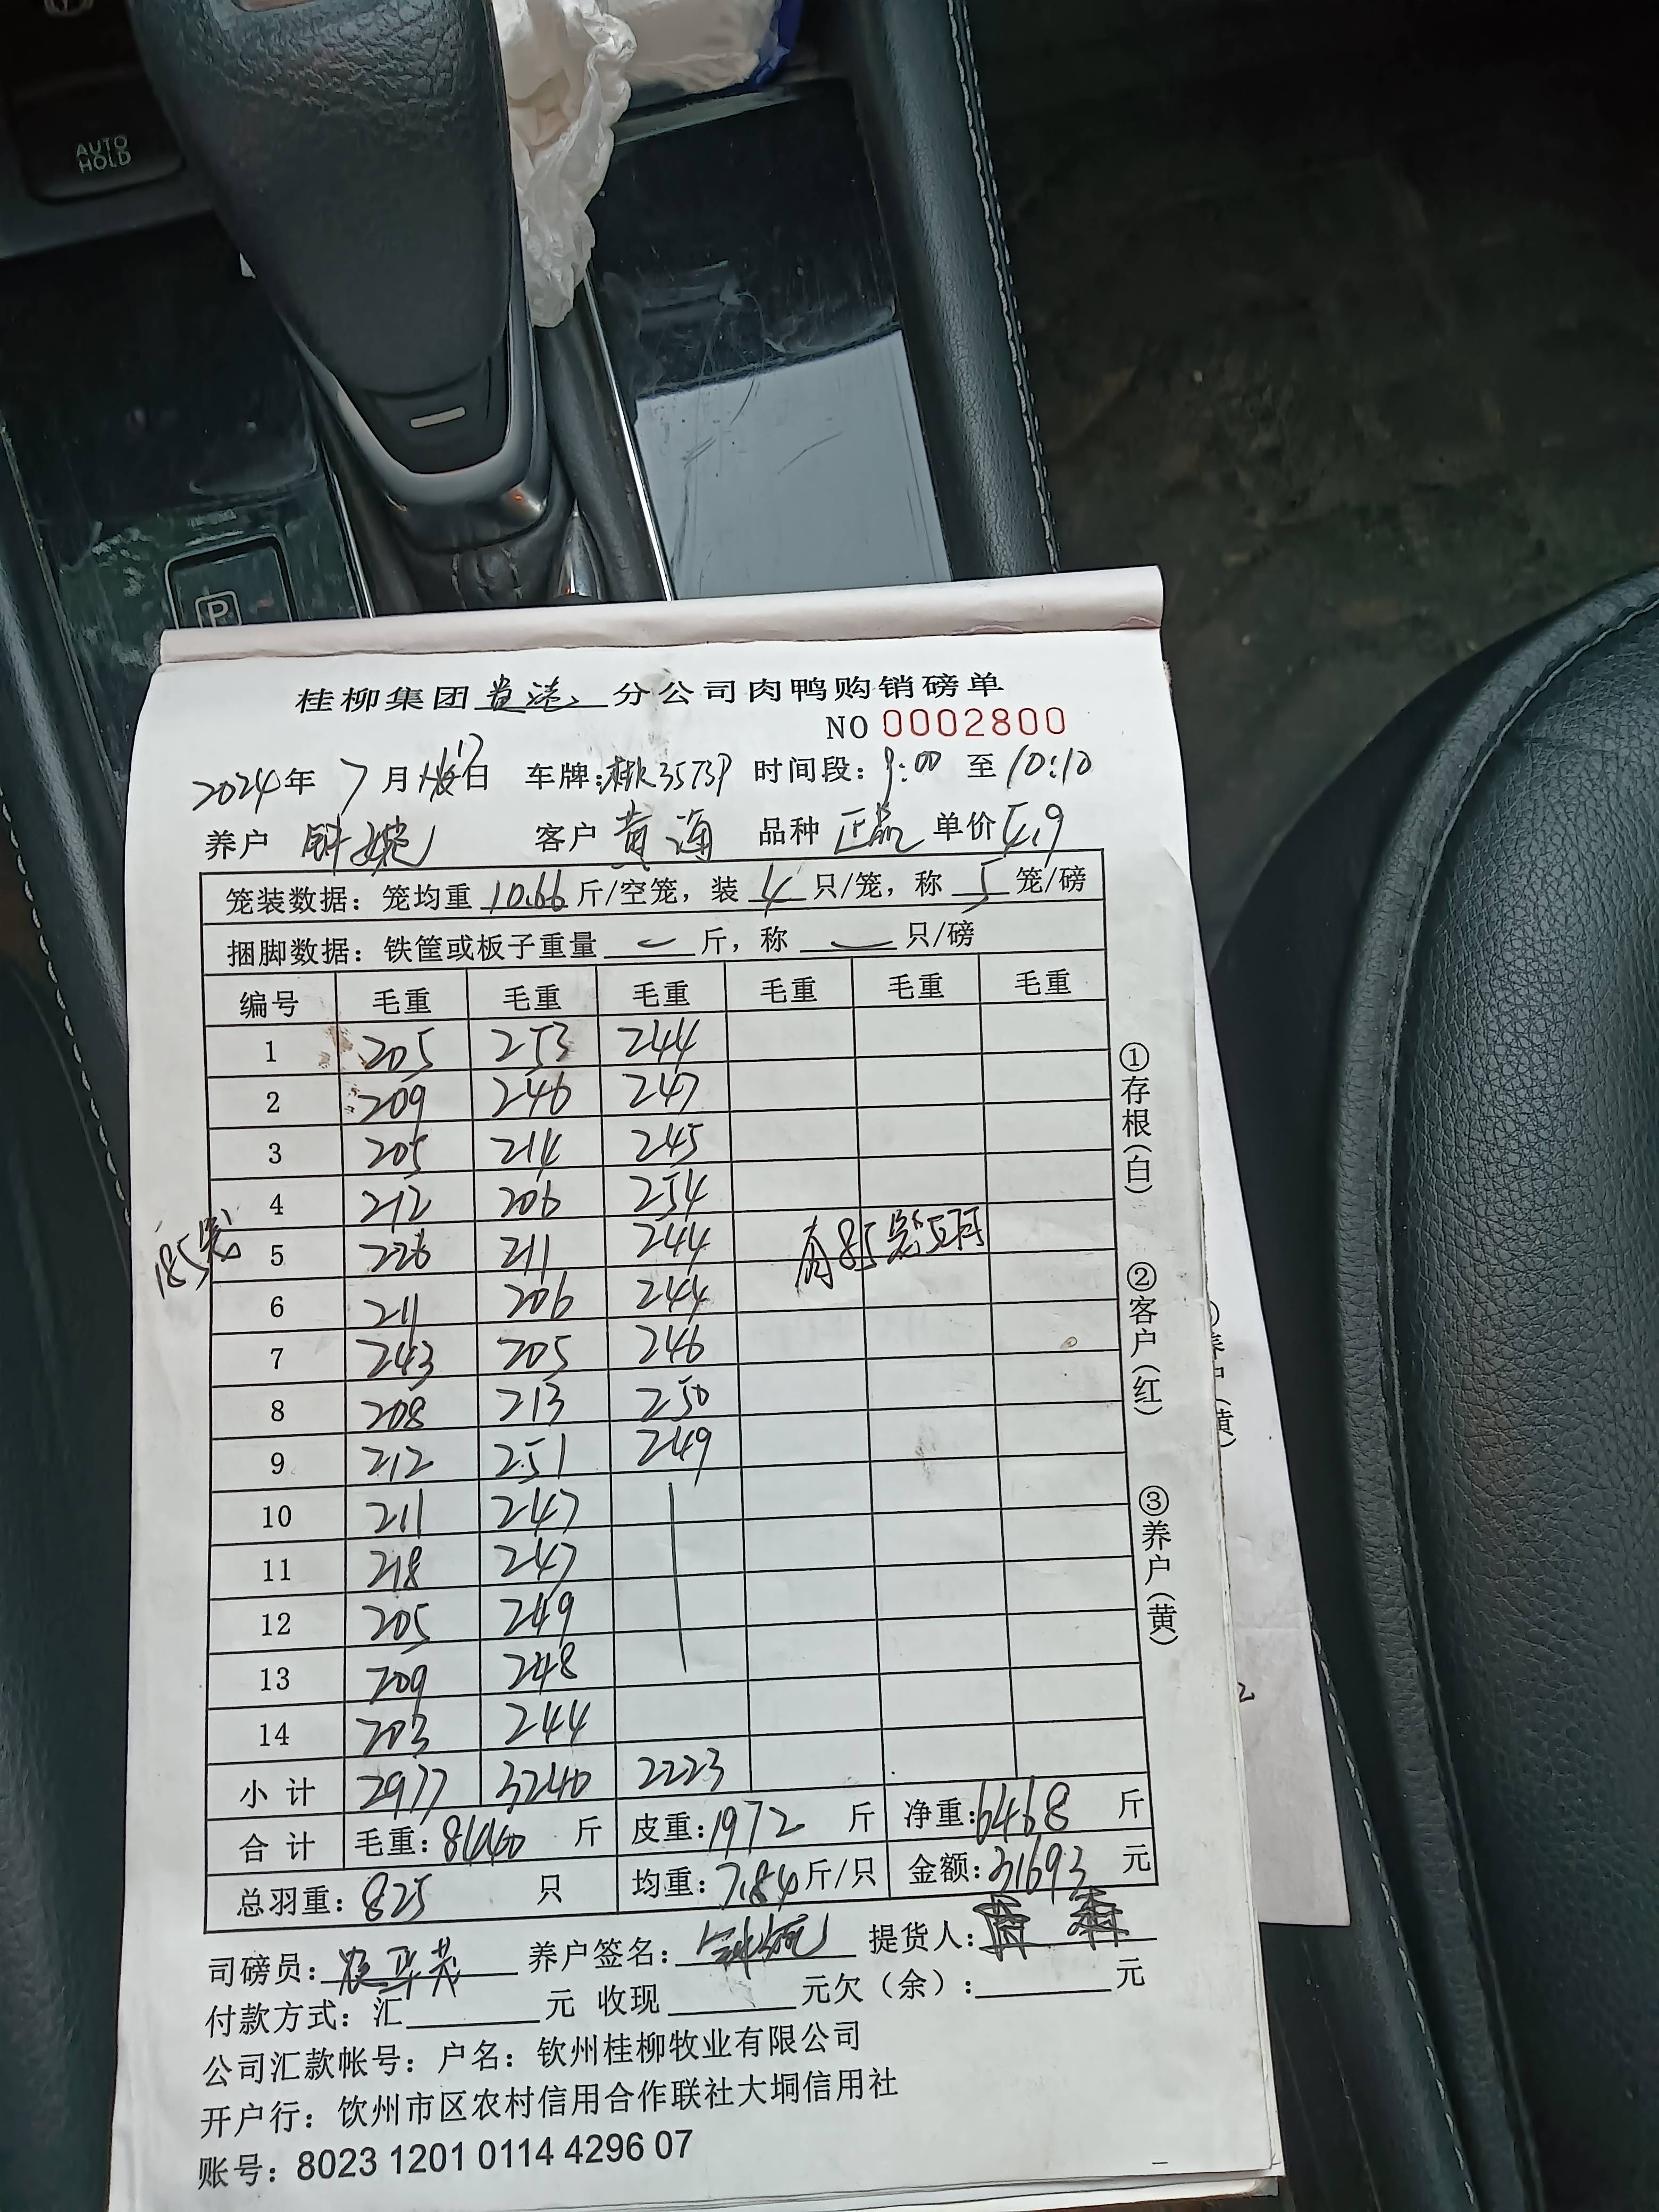 AUTO
HOLD
P
桂柳集团贵港分公司肉鸭购销磅单
NO 0002800
2024年 7月17日 车牌:桂K35739 时间段:9:00 至 10:10
养户 钟婉 客户 黄海 品种 正常 单价 4.9
笼装数据:笼均重 10.66 斤/空笼,装 4 只/笼,称 5 笼/磅
捆脚数据:铁筐或板子重量 — 斤,称 — 只/磅
编号 毛重 毛重 毛重 毛重 毛重 毛重
1 205 253 244
2 209 246 247
3 205 214 245
4 212 206 254
185笼 5 226 211 244 有85笼5只
6 211 206 244
7 243 205 246
8 208 213 250
9 212 251 249
10 211 247
11 218 247
12 205 249
13 209 248
14 203 244
小计 2977 3240 2223
合计 毛重:8440 斤 皮重:1972 斤 净重:6468 斤
总羽重:825 只 均重:7.84斤/只 金额:31693 元
司磅员: 养户签名:钟婉 提货人:
付款方式:汇 元 收现 元欠(余): 元
公司汇款帐号:户名:钦州桂柳牧业有限公司
开户行:钦州市区农村信用合作联社大垌信用社
账号:8023 1201 0114 4296 07
①存根(白)
②客户(红)
③养户(黄)